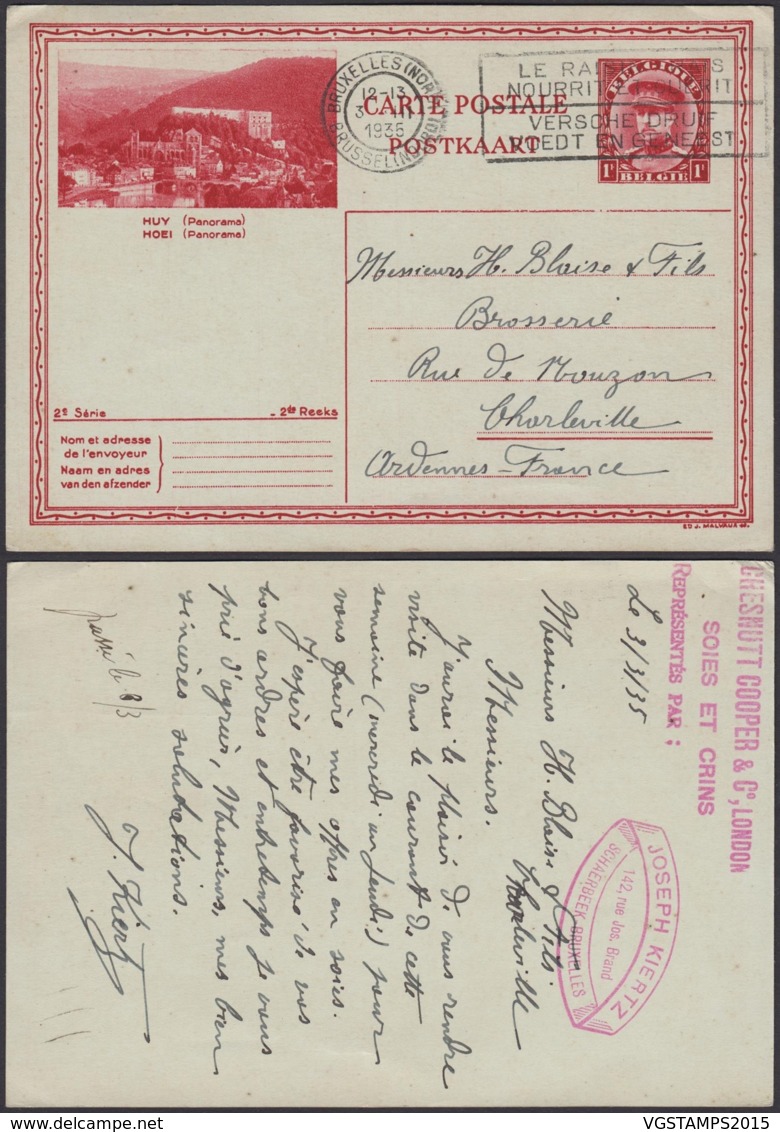 BRUXELLES (NORD)
12-13
3 III
1935
BRUSSEL (NOORD)
NOURRIT ET GUÉRIT
VERSCHE DRUIF
VOEDT EN GENEEST
CARTE POSTALE
POSTKAART
BELGIQUE
1F 1F
BELGIE
HUY (Panorama)
HOEI (Panorama)
Messieurs H. Blaise & Fils
Brosserie
Rue de Mouzon
Charleville
Ardennes - France
2e Série
2de Reeks
Nom et adresse
de l'envoyeur
Naam en adres
van den afzender
ED J. MALVAUX
CHESNUTT COOPER & Co, LONDON
SOIES ET CRINS
REPRÉSENTÉS PAR ;
JOSEPH KIERTZ
142, rue Jos. Brand
SCHAERBEEK-BRUXELLES
Le 3/3/35
Messieurs H. Blaise & Fils.
Charleville
Messieurs.
J'aurai le plaisir de vous rendre
visite dans le courant de cette
semaine (mercredi ou jeudi) pour
vous faire mes offres en soies.
J'espère être favorisé de vos
bons ordres et entretemps je vous
prie d'agréer, Messieurs, mes bien
sincères salutations.
J. Kiertz
passé le 8/3
VGSTAMPS2015